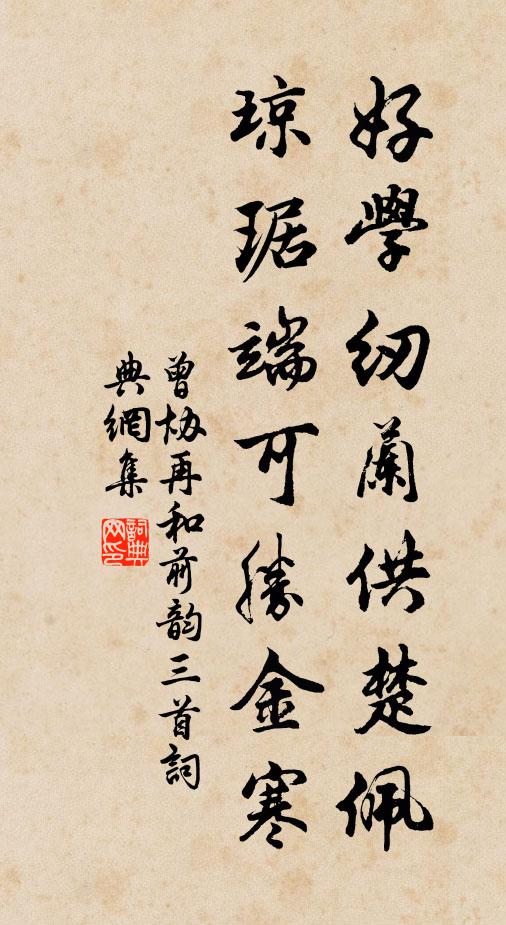 好學纫蘭供楚佩
琼琚端可勝金寒
曾协再和前韵三首詞
典網集
詞典網印